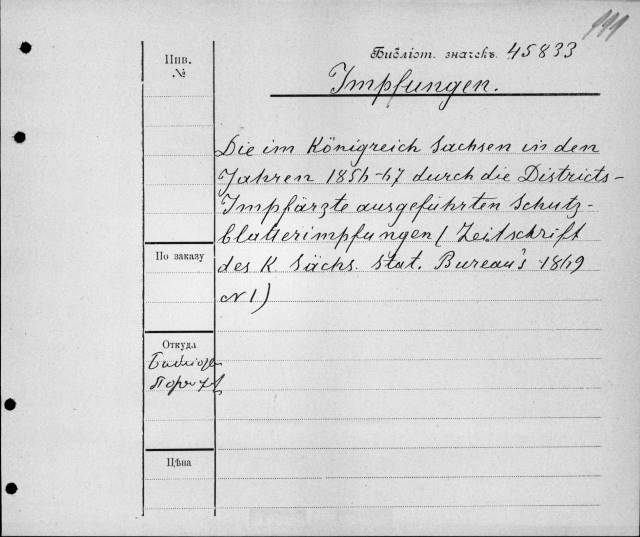 111
Инв.
№
Библіот. значекъ. 45833
Impfungen.
Die im Königreich Sachsen in den
Jahren 1856-67 durch die Districts-
Impfärzte ausgeführten Schutz-
blatterimpfungen (Zeitschrift
des K. Sächs. stat. Bureau's 1869
№ 1)
По заказу
Откуда
Цѣна